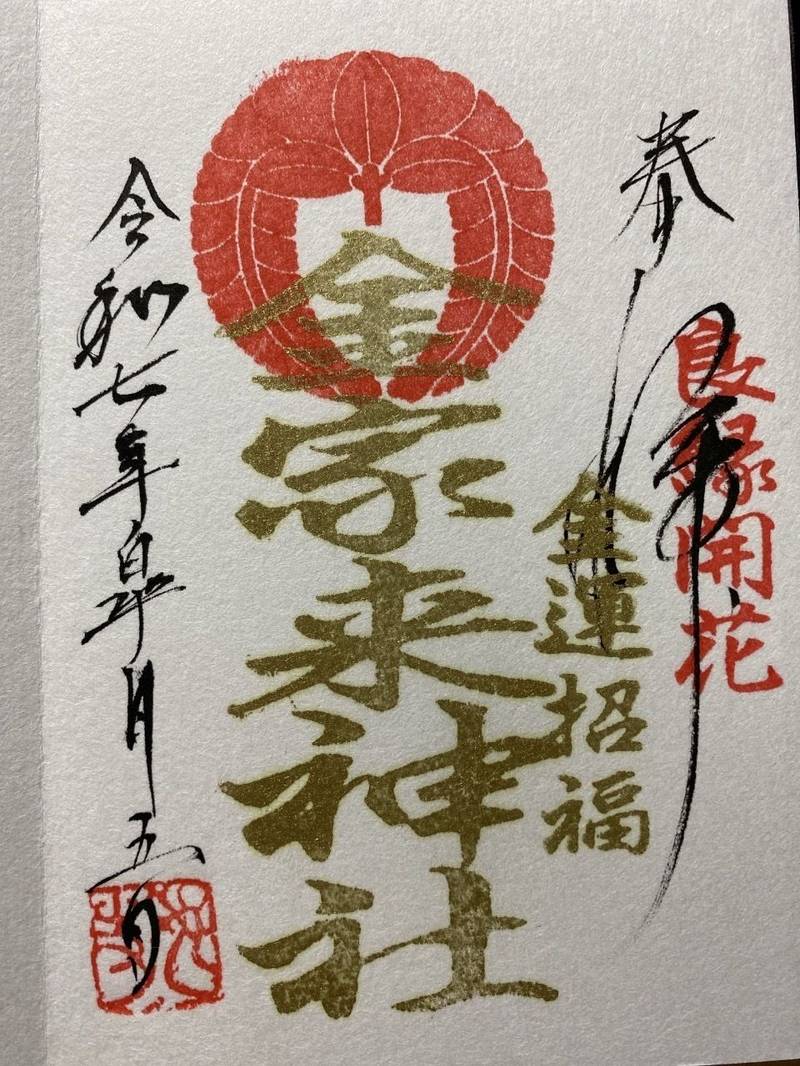 奉拝
良縁開花
金運招福
金家来神社
令和七年皐月五日